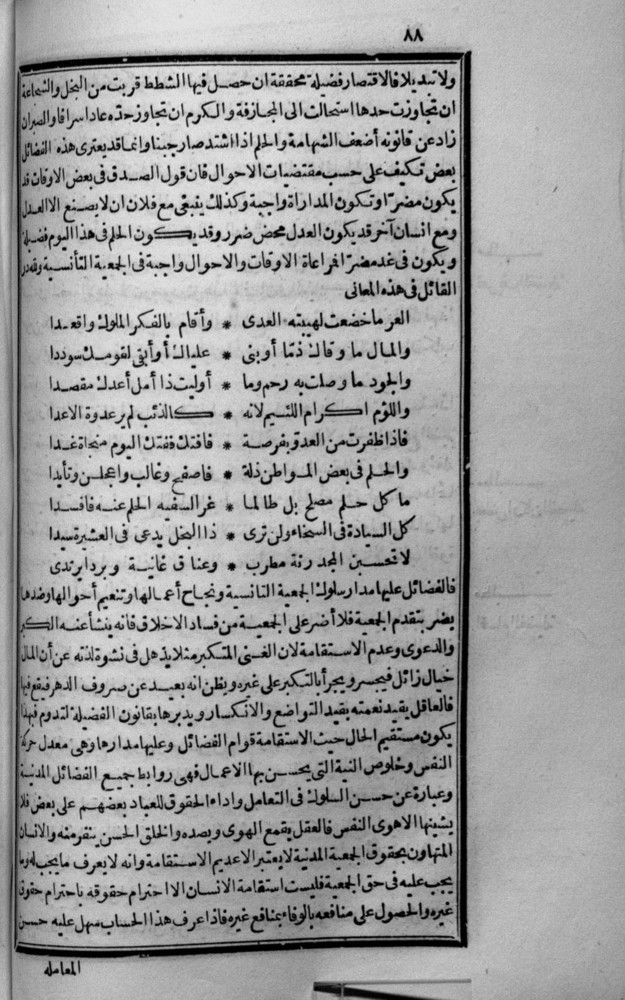 ٨٨
ولا تبديلا فالاقتصار فضيلة محققة ان حصل فيها الشطط قربت من البخل والشجاعة
ان تجاوزت حدها استحالت الى المجازفة والكرم ان تجاوز حدّه عاد اسرافا والصبر ان
زاد عن قانونه أضعف الشهامة والحلم اذا اشتد صار جبنا وانما قد يعترى هذه الفضائل
بعض تكيف على حسب مقتضيات الاحوال فان قول الصدق فى بعض الاوقات قد
يكون مضرّا وتكون المداراة واجبة وكذلك ينبغى مع فلان ان لا يصنع الا العدل
ومع انسان آخر قد يكون العدل محض ضرر وقد يكون الحلم فى هذا اليوم فضيلة
ويكون فى غد مضرّا فمراعاة الاوقات والاحوال واجبة فى الجمعية التأنسية ولله در
القائل فى هذه المعانى
العز ما خضعت لهيبته العدى * وأقام بالفكر الملوك واقعدا
والمال ما وقاك ذمّا أو بنى * علياك أو أبقى لقومك سوددا
والجود ما وصلت به رحم وما * أوليت ذا أمل أعدك مقصدا
واللؤم اكرام اللئيم لانه * كالذئب لم ير عدوة الا عدا
فاذا ظفرت من العدوّ بفرصة * فافتك ففتك اليوم منجاة غدا
والحلم فى بعض المواطن ذلة * فاصفح وغالب واعجلن وتأيدا
ما كل حلم مصلح بل طالما * غر السفيه الحلم عنه فافسدا
كل السيادة فى السخاء ولن ترى * ذا البخل يدعى فى العشيرة سيدا
لا تحسبن المجد رنة مطرب * وعناق غانية وبردا يرتدى
فالفضائل عليها مدار سلوك الجمعية التانسية ونجاح أعمالها وتنعيم أحوالها وضدها
يضر بتقدم الجمعية فلا أضر على الجمعية من فساد الاخلاق فانه ينشأ عنه الكبر
والدعوى وعدم الاستقامة لان الغنى المتكبر مثلا يذهل فى نشوة لذته عن أن المال
خيال زائل فيجسر ويجرأ بالتكبر على غيره ويظن انه بعيد عن صروف الدهر فيقع فيها
فالعاقل يقيد نعمته بقيد التواضع والانكسار ويدبرها بقانون الفضيلة لتدوم فبهذا
يكون مستقيم الحال حيث الاستقامة قوام الفضائل وعليها مدارها وهى معدل حركة
النفس وخلوص النية التى يحسن بها الاعمال فهى روابط جميع الفضائل المدنية
وعبارة عن حسن السلوك فى التعامل واداء الحقوق للعباد بعضهم على بعض فلا
يشينها الا هوى النفس فالعقل يقمع الهوى ويصده والخلق الحسن ينفر منه والانسان
المتهاون بحقوق الجمعية المدنية لا يعتبر الا عديم الاستقامة وانه لا يعرف ما يجب له وما
يجب عليه فى حق الجمعية فليست استقامة الانسان الا احترام حقوقه باحترام حقوق
غيره والحصول على منافعه بالوفاء بمنافع غيره فاذا عرف هذا الحساب سهل عليه حسن
المعامله